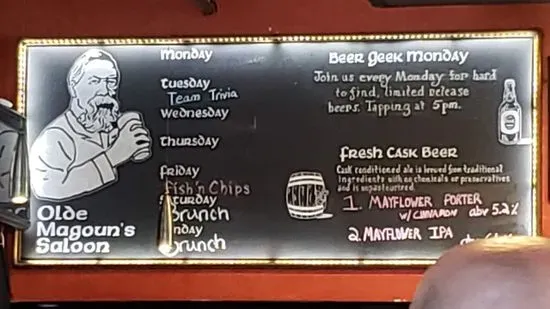 Monday
Tuesday
Team Trivia
Wednesday
Thursday
Friday
Fish'n Chips
Saturday
Brunch
Brunch
Olde
Magoun's
Saloon
Beer Geek Monday
Join us every Monday for hard
to find, limited release
beers. Tapping at 5pm.
Fresh Cask Beer
Cask conditioned ale is brewed from traditional
ingredients with no chemicals or preservatives
and is unpasteurized.
1. MAYFLOWER PORTER
W/ CINNAMON abv 5.2%
2. MAYFLOWER IPA